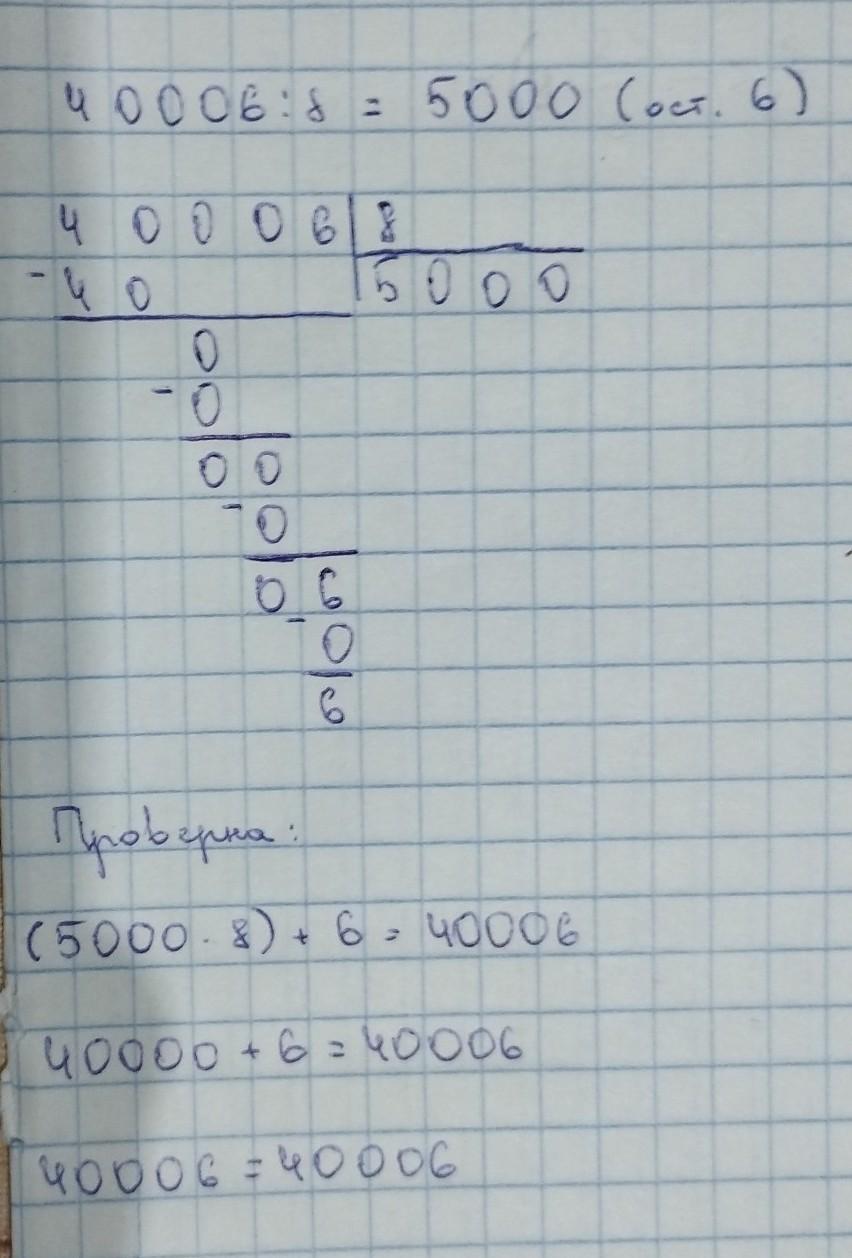 40006:8 = 5000 (ост. 6)
40006|8
-40 |5000
0
-0
00
-0
06
-0
6
Проверка:
(5000 · 8) + 6 = 40006
40000 + 6 = 40006
40006 = 40006